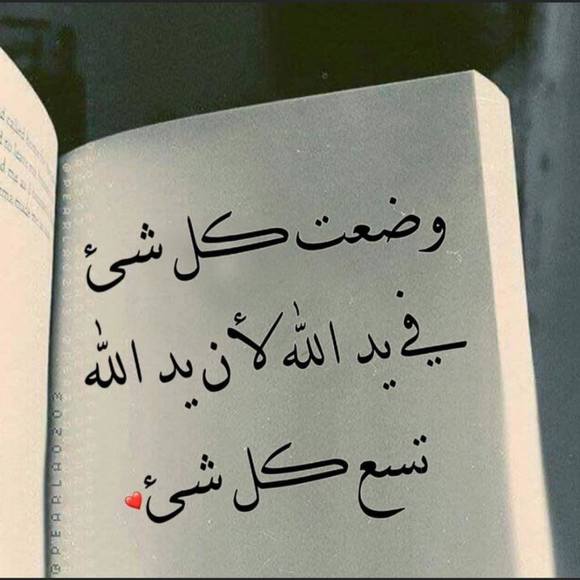 وضعت كل شئ
في يد الله لأن يد الله
تسع كل شئ❤️
@PEARLA0203